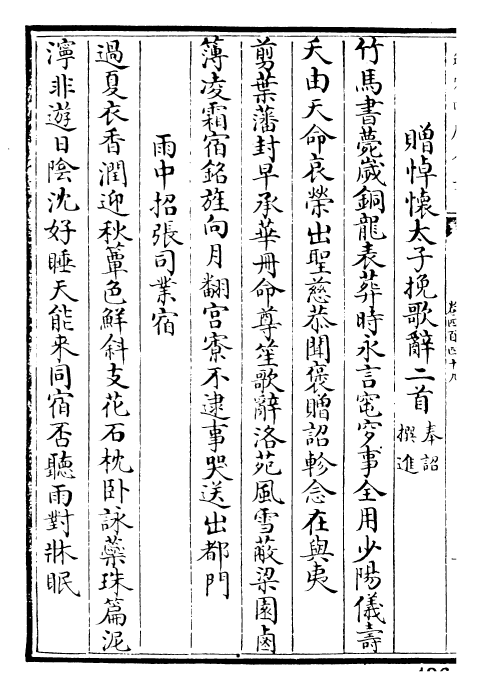 贈悼懷太子挽歌辭二首 奉詔撰進
竹馬書薨歲銅龍表葬時永言窀穸事全用少陽儀壽
夭由天命哀榮出聖慈恭聞褒贈詔軫念在與夷
剪葉藩封早承華冊命尊笙歌辭洛苑風雪蔽梁園鹵
薄凌霜宿銘旌向月翻宮寮不逮事哭送出都門
雨中招張司業宿
過夏衣香潤迎秋簟色鮮斜支花石枕卧詠蘂珠篇泥
濘非遊日陰沈好睡天能来同宿否聽雨對牀眠